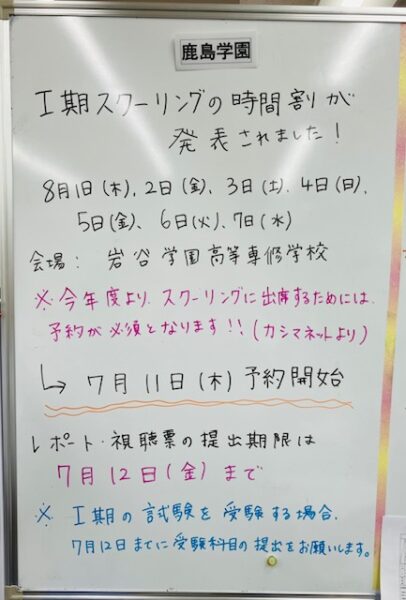 鹿島学園
Ⅰ期スクーリングの時間割が
発表されました！
8月1日(木)、2日(金)、3日(土)、4日(日)、
5日(金)、6日(火)、7日(水)
会場：岩谷学園高等専修学校
※今年度より、スクーリングに出席するためには、
予約が必須となります!!(カシマネットより)
↳ 7月11日(木)予約開始
レポート・視聴票の提出期限は
7月12日(金)まで
※Ⅰ期の試験を受験する場合、
7月12日までに受験科目の提出をお願いします。